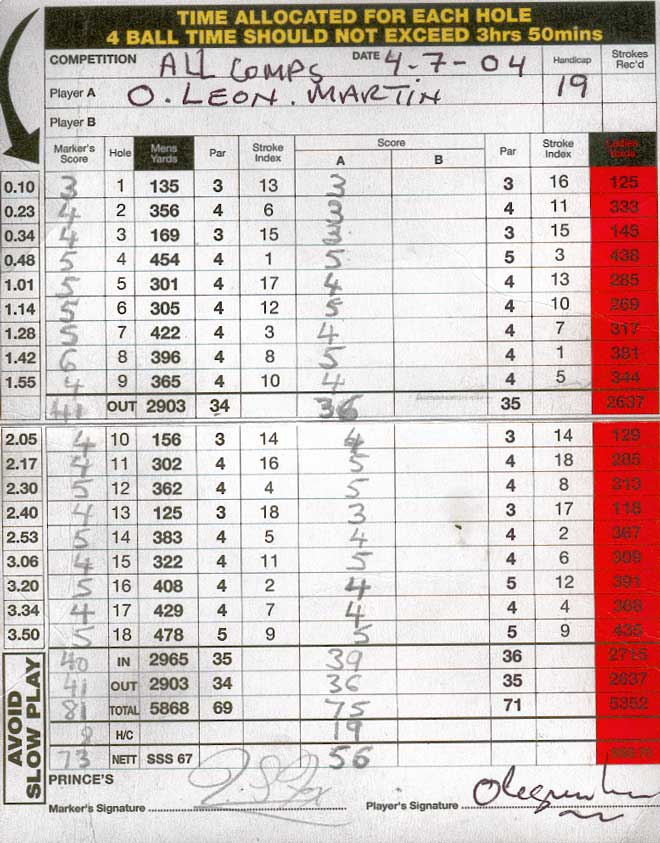 TIME ALLOCATED FOR EACH HOLE
4 BALL TIME SHOULD NOT EXCEED 3hrs 50mins
COMPETITION ALL COMPS DATE 4-7-04 Handicap Strokes Rec'd
Player A O. LEON. MARTIN 19
Player B
Marker's Score Hole Mens Yards Par Stroke Index Score A B Par Stroke Index Ladies Yards
0.10 3 1 135 3 13 3 3 16 125
0.23 4 2 356 4 6 3 4 11 333
0.34 4 3 169 3 15 3 15 145
0.48 5 4 454 4 1 5 5 3 438
1.01 5 5 301 4 17 4 4 13 285
1.14 5 6 305 4 12 5 4 10 269
1.28 5 7 422 4 3 4 4 7 317
1.42 6 8 396 4 8 5 4 1 381
1.55 4 9 365 4 10 4 4 5 344
41 OUT 2903 34 36 35 2637
2.05 4 10 156 3 14 4 3 14 129
2.17 4 11 302 4 16 5 4 18 285
2.30 5 12 362 4 4 5 4 8 313
2.40 4 13 125 3 18 3 3 17 118
2.53 5 14 383 4 5 4 4 2 367
3.06 4 15 322 4 11 5 4 6 309
3.20 5 16 408 4 2 4 5 12 391
3.34 4 17 429 4 7 4 4 4 368
3.50 5 18 478 5 9 5 5 9 435
40 IN 2965 35 39 36 2715
41 OUT 2903 34 36 35 2637
81 TOTAL 5868 69 75 71 5352
8 H/C 19
73 NETT SSS 67 56
AVOID SLOW PLAY
PRINCE'S
Marker's Signature Player's Signature